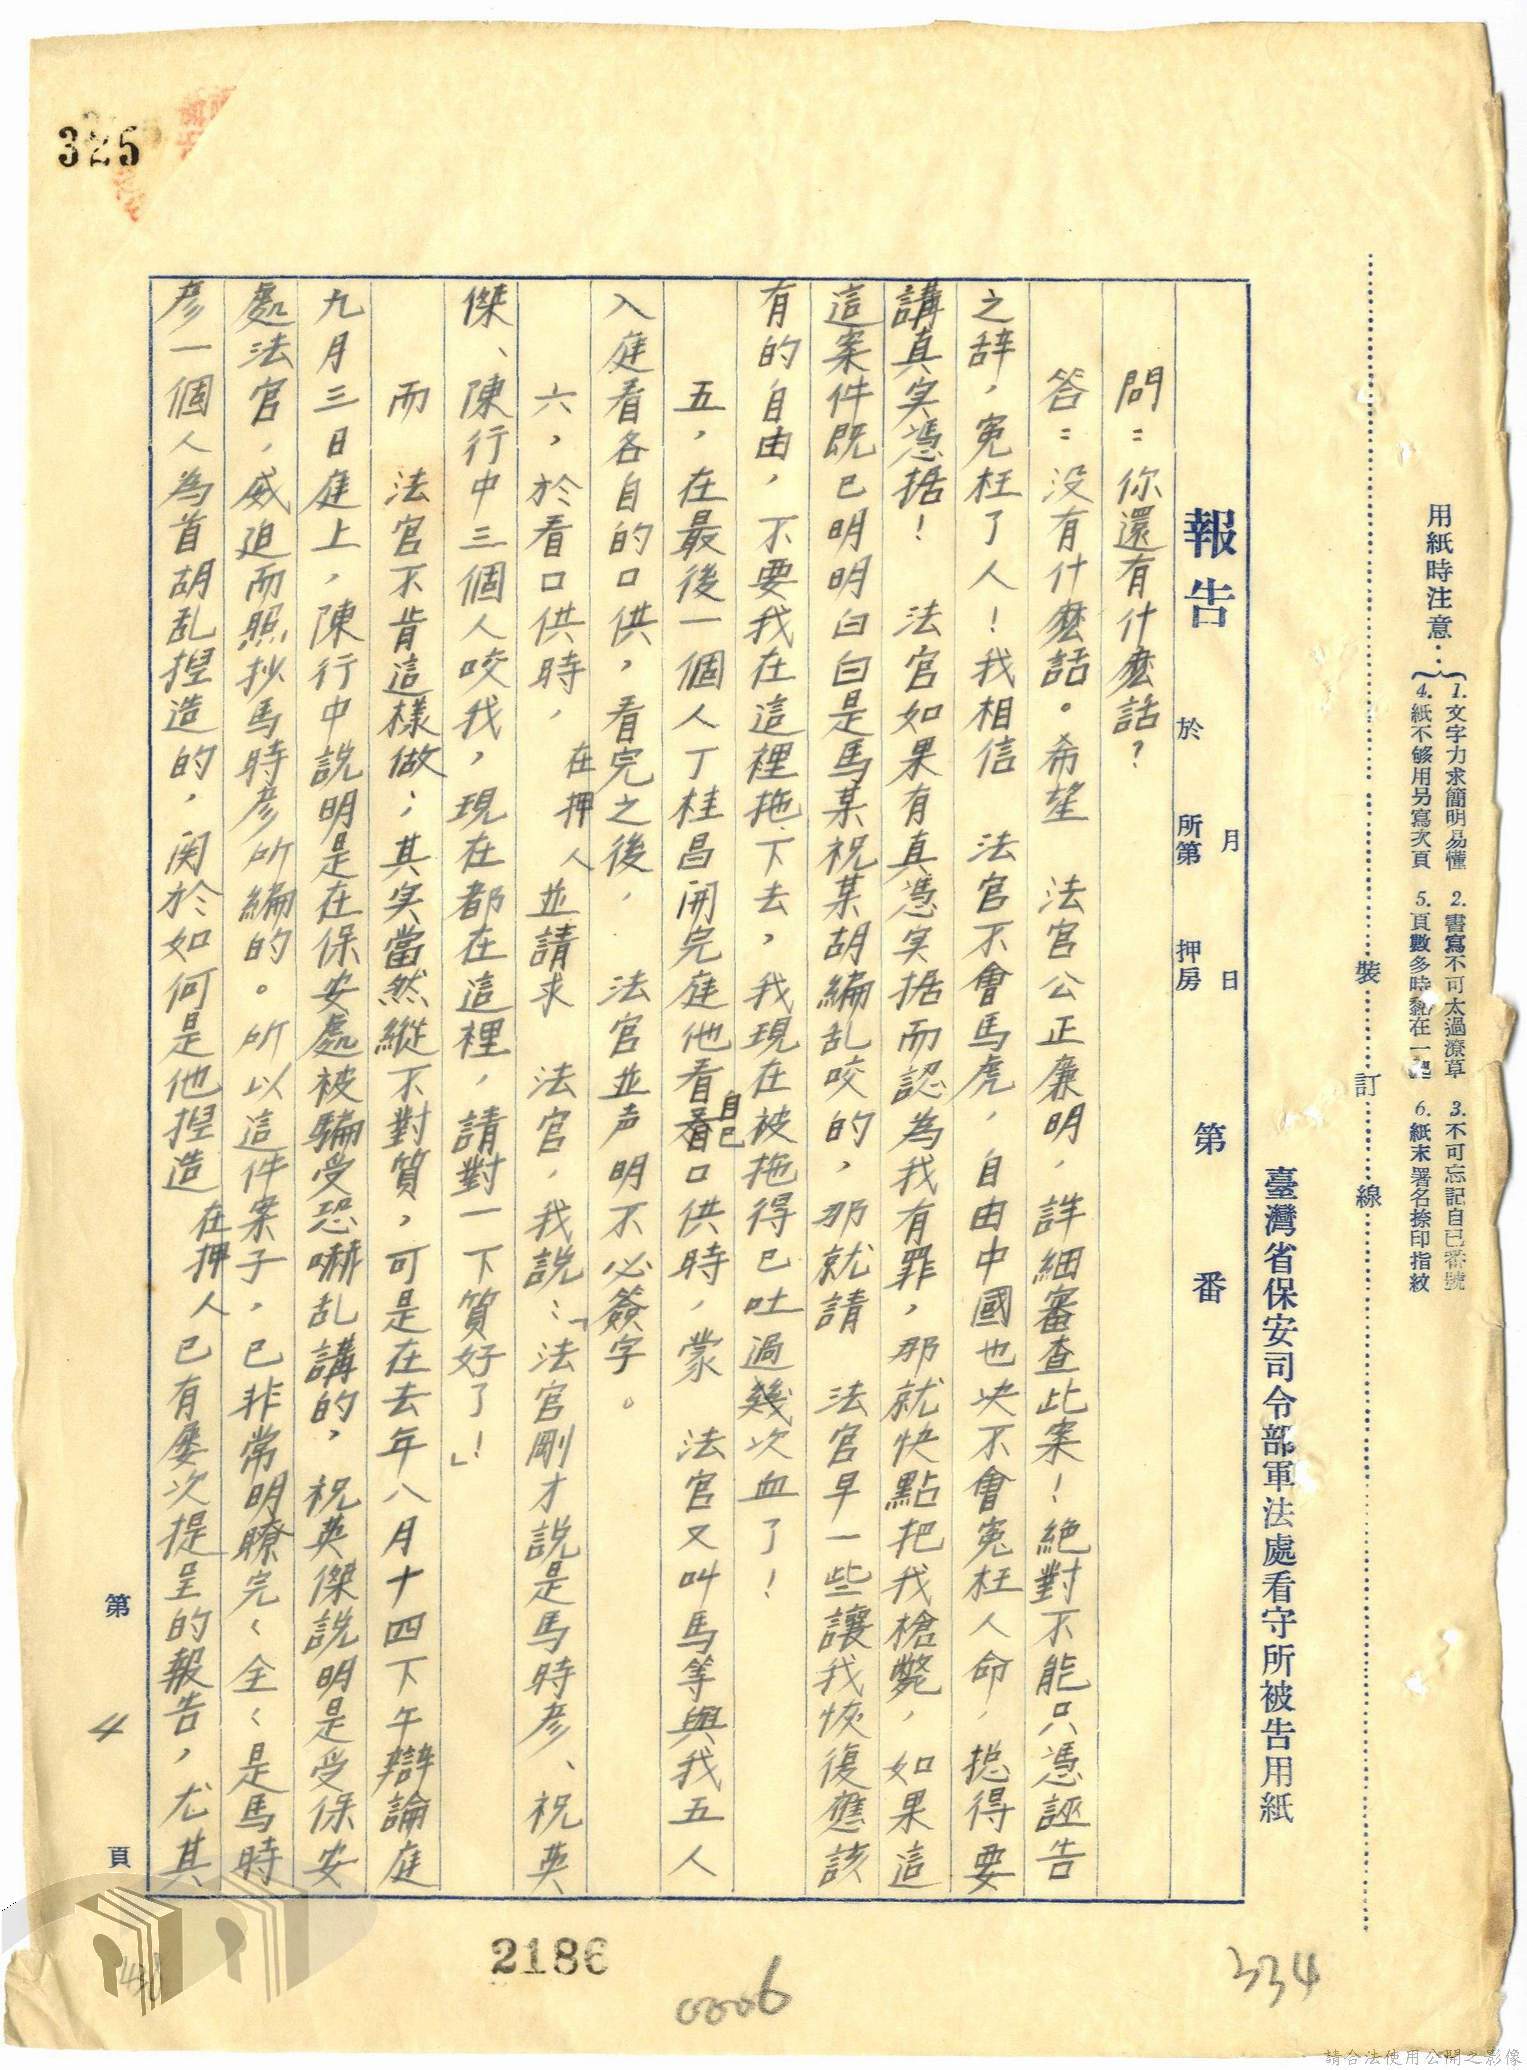 用紙時注意：
1.文字力求簡明易懂 2.書寫不可太過潦草 3.不可忘記自己番號
4.紙不够用另寫次頁 5.頁數多時黏在一起 6.紙末署名捺印指紋
裝 訂 線
臺灣省保安司令部軍法處看守所被告用紙
報告 月 日 第 番
於 所第 押房
問：你還有什麽話？
答：没有什麽話。希望 法官公正廉明，詳細審查此案！絕對不能只憑誣告
之辞，寃枉了人！我相信 法官不會馬虎，自由中國也决不會寃枉人命，揔得要
講真实憑据！ 法官如果有真憑实据而認為我有罪，那就快點把我槍斃，如果這
這案件既已明明白白是馬某祝某胡編乱咬的，那就請 法官早一些讓我恢復應該
有的自由，不要我在這裡拖下去，我現在被拖得已吐過幾次血了！
五，在最後一個人丁桂昌開完庭他看看自己口供時，蒙 法官又叫馬等與我五人
入庭看各自的口供，看完之後， 法官並声明不必簽字。
六，於看口供時，在押人並請求 法官，我説：「法官剛才説是馬時彦、祝英
傑、陳行中三個人咬我，現在都在這裡，請對一下質好了！」
而 法官不肯這樣做；其实當然縱不對質，可是在去年八月十四下午辯論庭
九月三日庭上，陳行中説明是在保安處被騙受恐嚇乱講的，祝英傑説明是受保安
處法官，威迫而照抄馬時彦所編的。所以這件案子，已非常明瞭完〱全〱是馬時
彦一個人為首胡乱揑造的，関於如何是他揑造在押人已有屡次提呈的報告，尤其
第 4 頁
325
2186
0006
334
請合法使用公開之影像